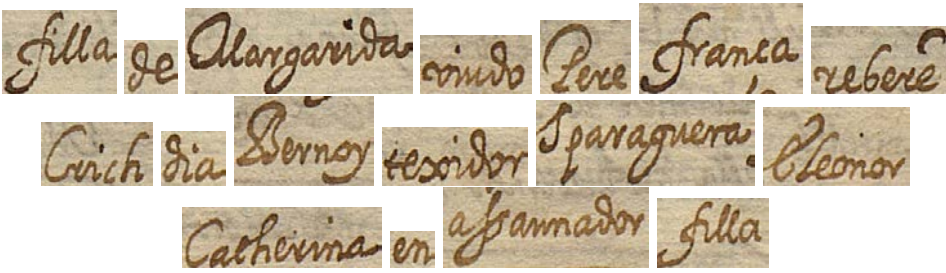 filla de Margarida viudo Pere frança reberē
Crich dia Bernoy texidor Sparaguera Eleonor
Catherina en assaunador filla